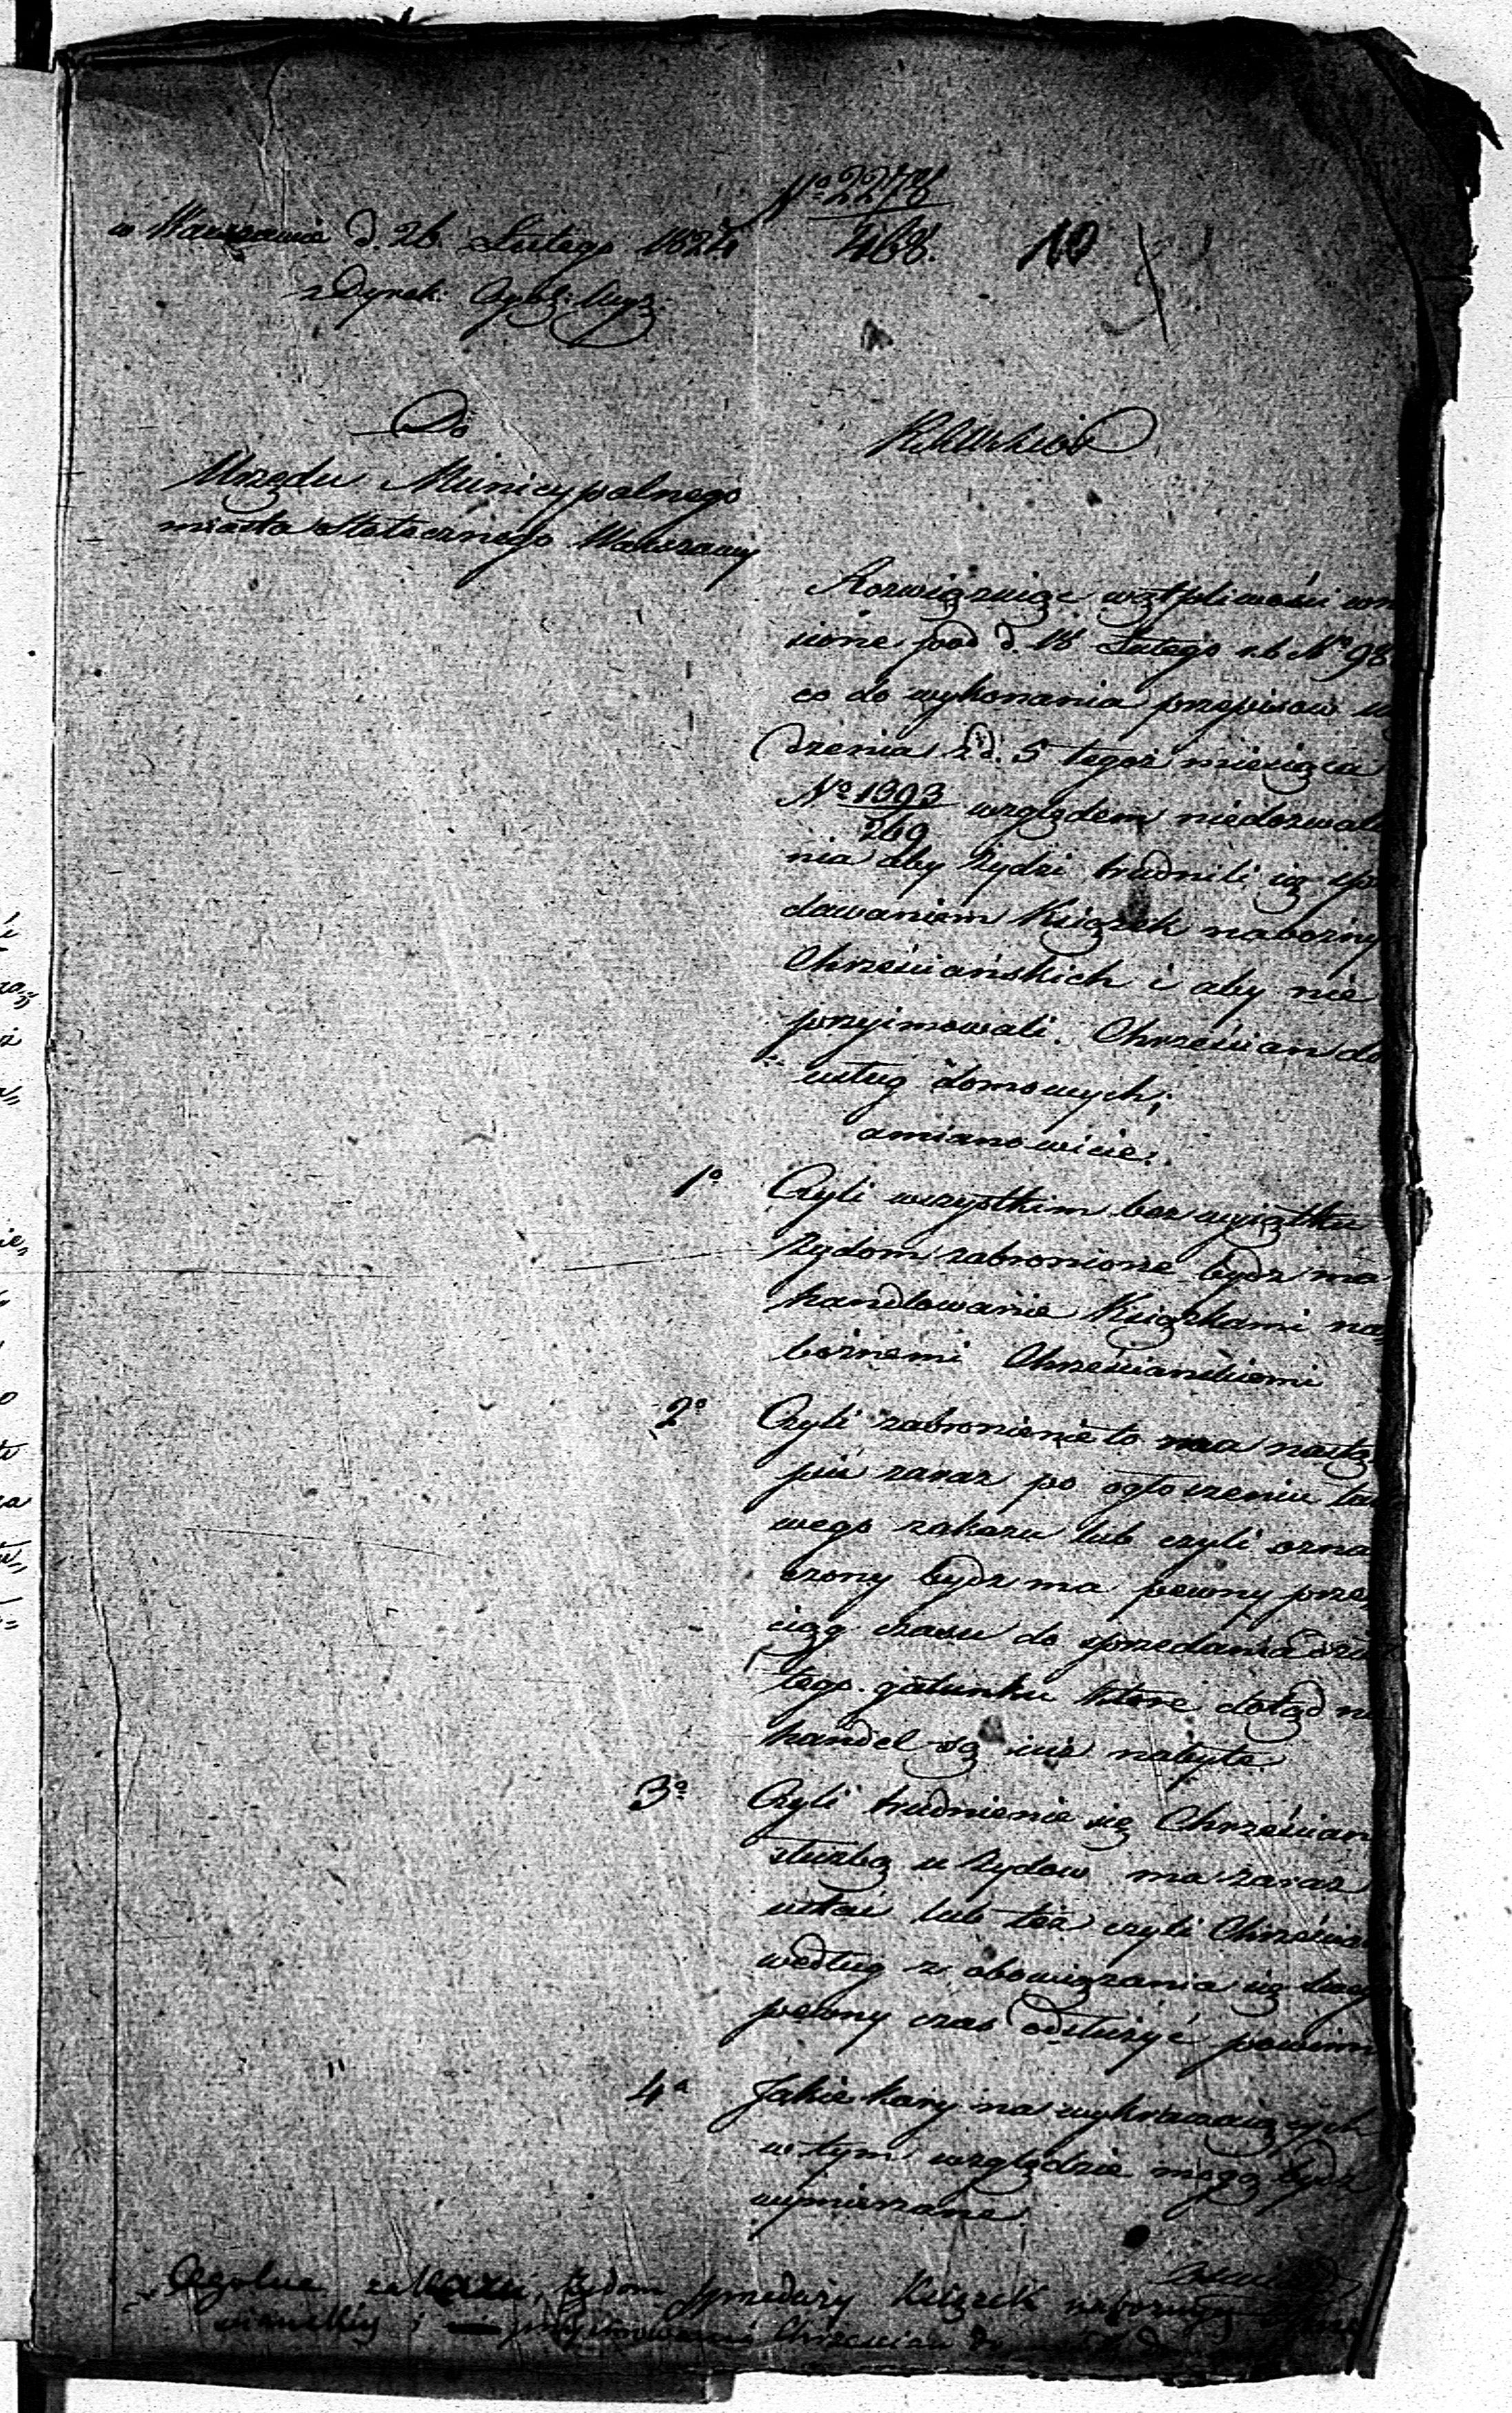 No 2278
468.
10
w Warszawie d. 26 Lutego 1824
z Dyrek:
Do
Urzędu Municypalnego
miasta Stołecznego Warszawy
Rozwiązuiąc wątpliwości wn
sione pod d. 18 Lutego r.b. No 98
co do wykonania przepisow
dzenia z d. 5 tegoż miesiąca
No 1393
269
względem niedozwala
nia aby Żydzi trudnili się
dawaniem Książek nabożny
Chrześciańskich i aby nie
przyimowali Chrześcian do
usług domowych;
amianowicie:
1o Czyli wszystkim bez wyiątku
Żydom zabronione bydz ma
handlowanie Książkami na
bożnemi Chrześcianskiemi
2o Czyli zabronienie to ma nastą
pić zaraz po ogłoszeniu ta
wego zakazu lub czyli ozna
czony bydz ma pewny prze
ciąg czasu do sprzedania
tego gatunku które dotąd n
handel są iuż nabyte
3o Czyli trudnienie się Chrześcian
służbą u Żydow ma zaraz
ustać lub też czyli Chrześcia
według zobowiązania się
pewny czas odsłużyć powinn
4o Jakie kary na wykraczaiących
w tym względzie mogą bydz
wymierzane.
Ogolne zakazu, Żydom sprzedaży Książek
i przyimowania Chrzescian do